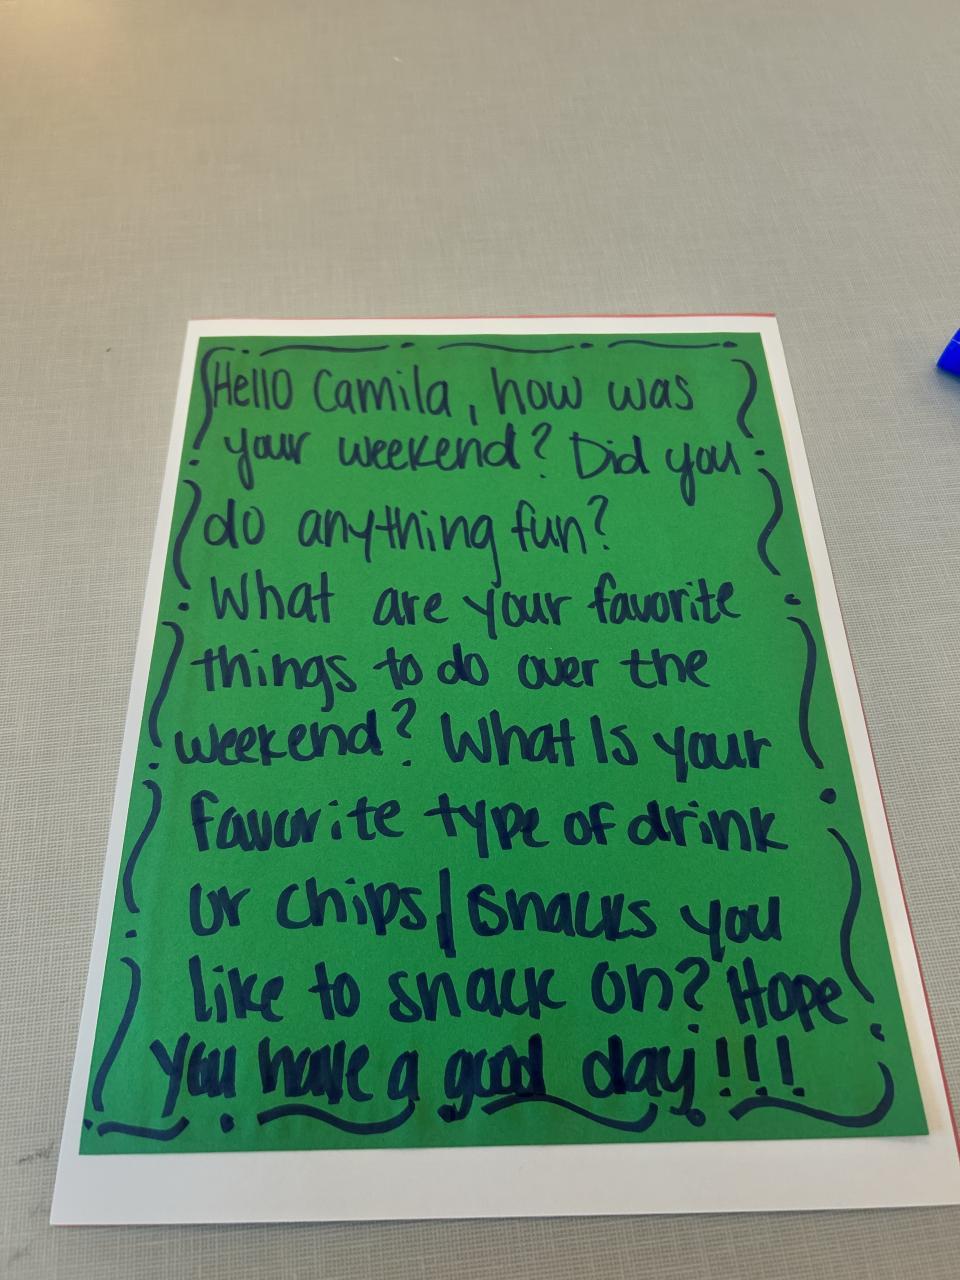 Hello Camila, how was
your weekend? Did you
do anything fun?
What are your favorite
things to do over the
weekend? What Is your
favorite type of drink
or chips/snacks you
like to snack on? Hope
you have a good day!!!